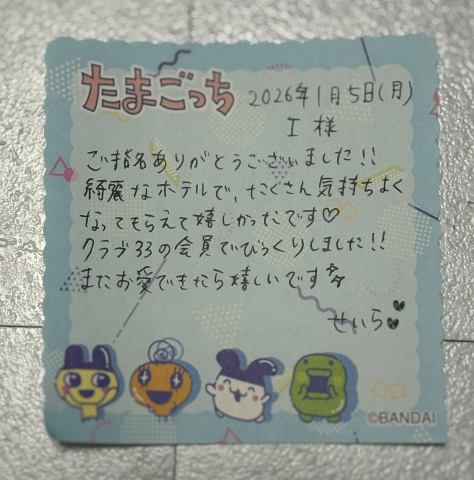 たまごっち
2026年1月5日(月)
I 様
ご指名ありがとうございました!!
綺麗なホテルで、たくさん気持ちよく
なってもらえて嬉しかったです♡
クラブ33の会員でびっくりしました!!
またお愛できたら嬉しいです☆
せいら♥
©BANDAI